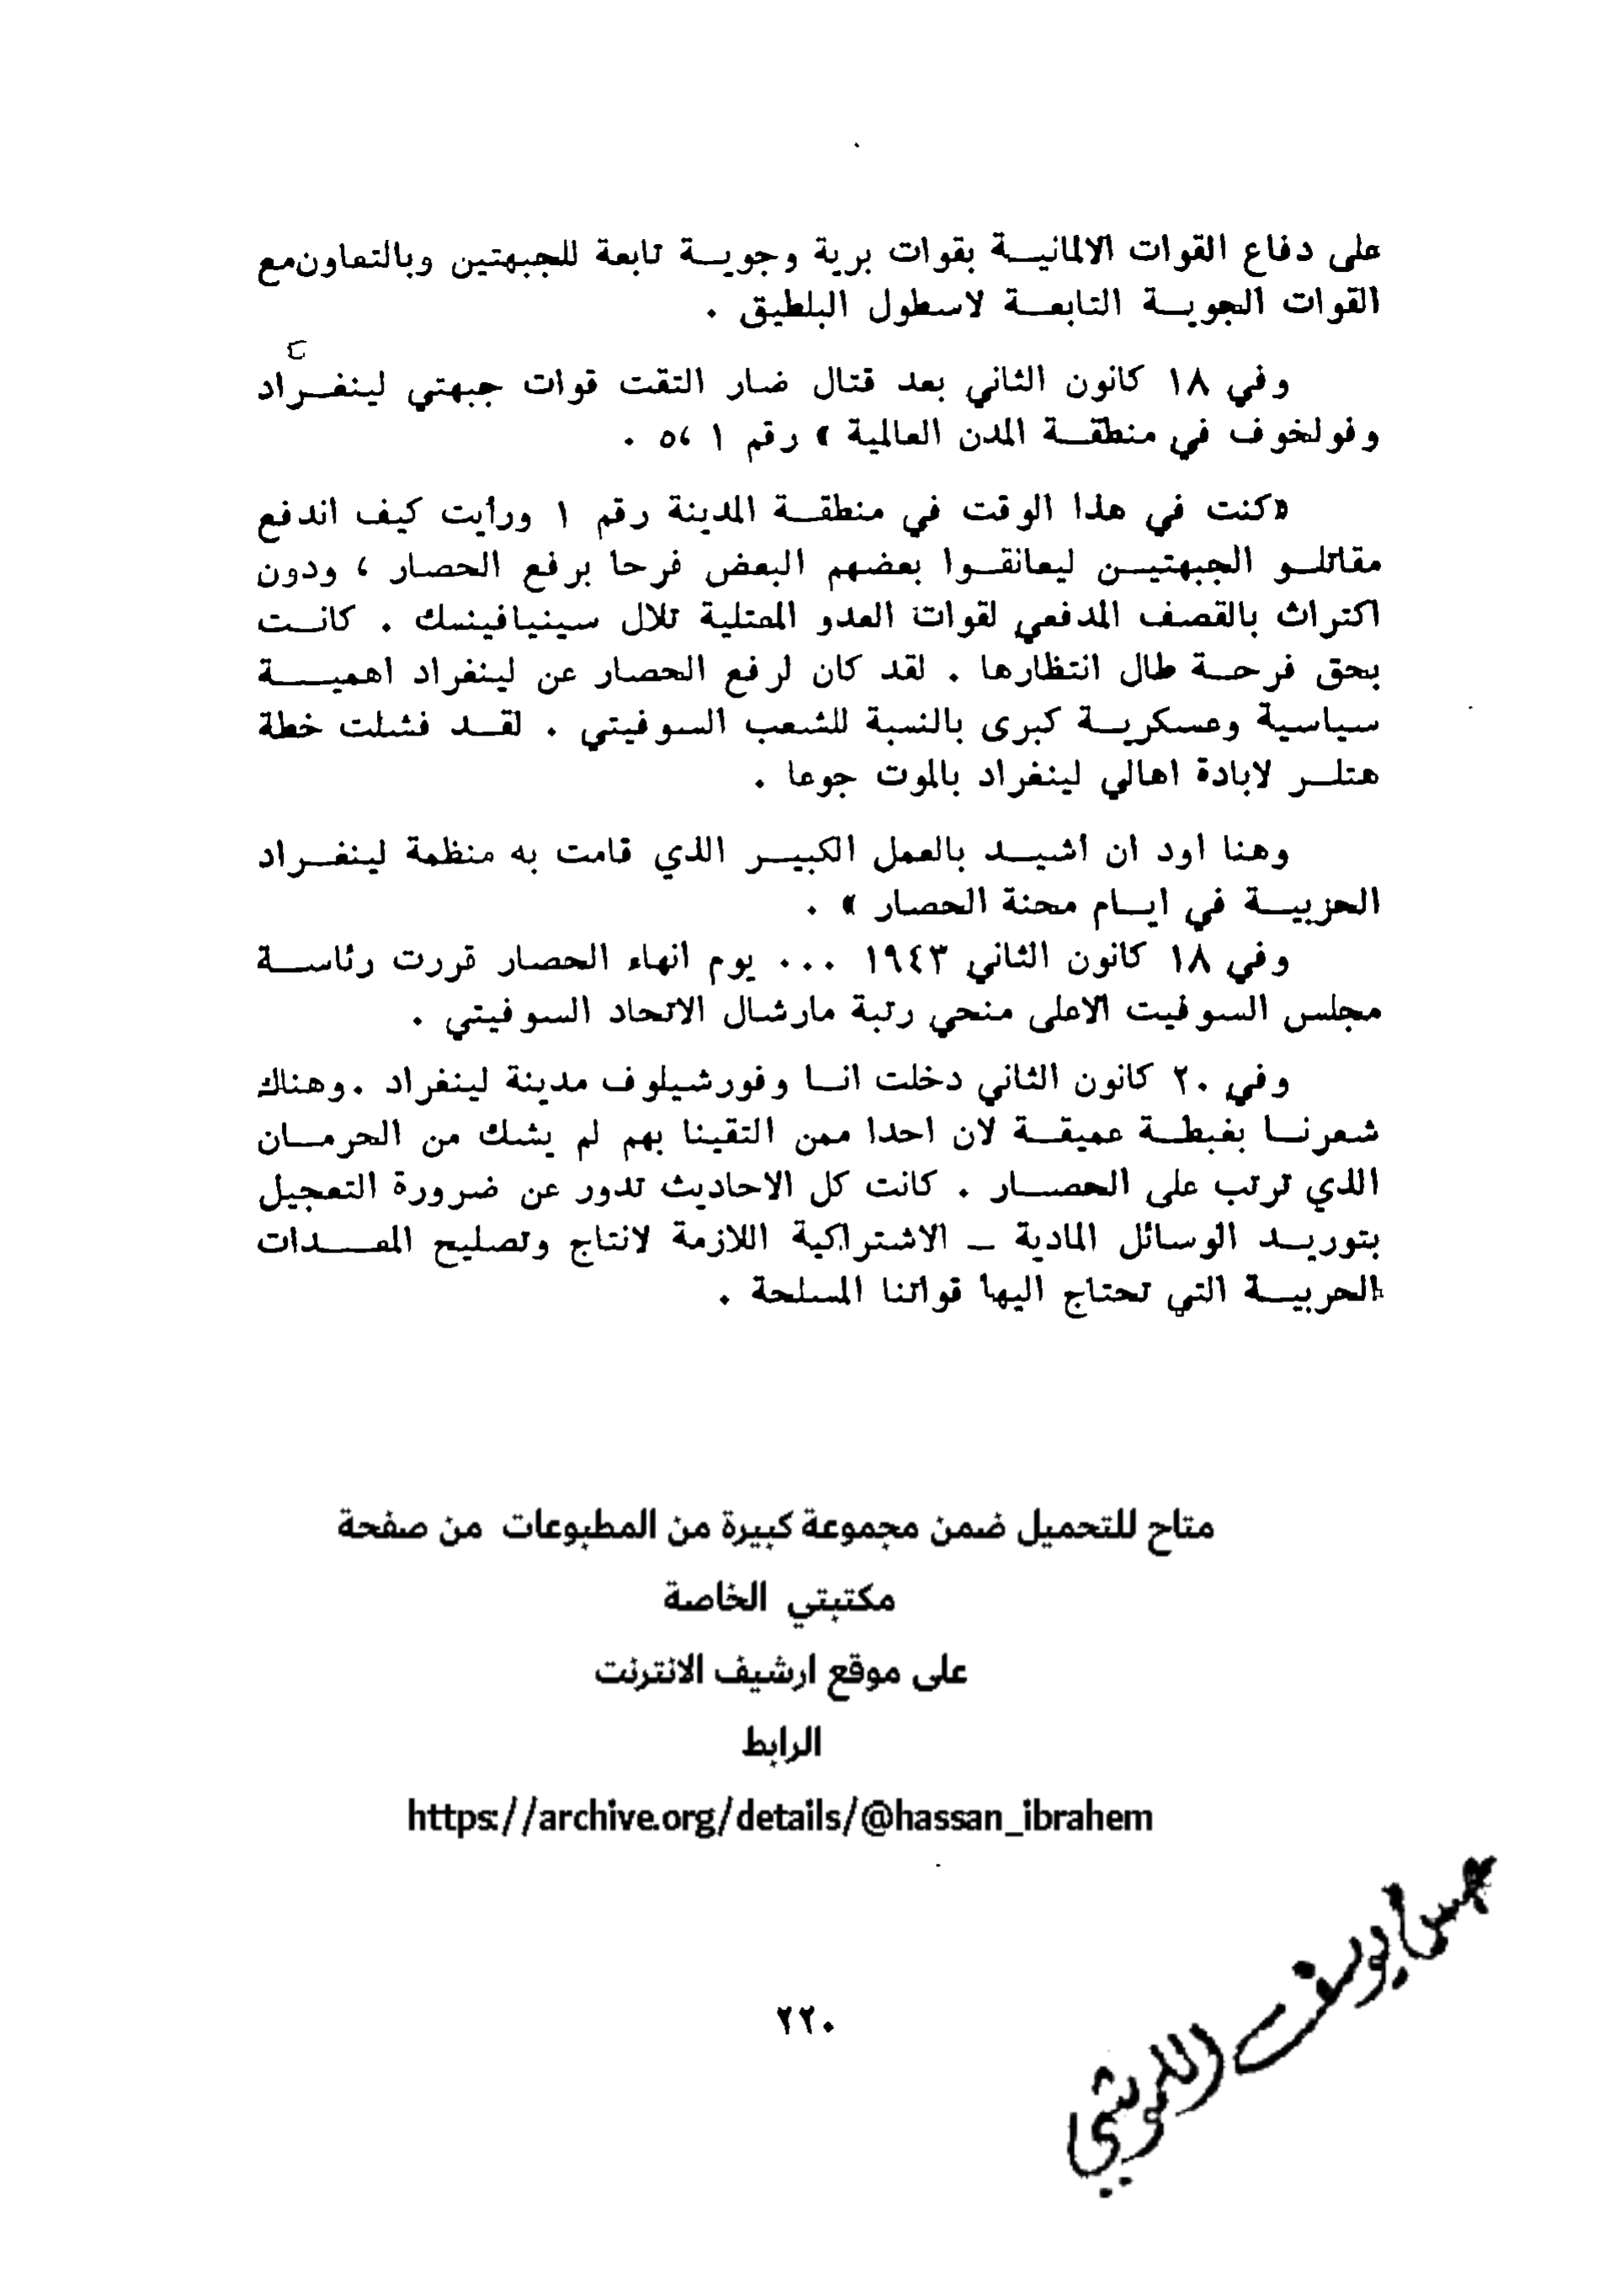 على دفاع القوات الالمانية بقوات برية وجوية تابعة للجبهتين وبالتعاون مع
القوات الجوية التابعة لاسطول البلطيق .
وفي ١٨ كانون الثاني بعد قتال ضار التقت قوات جبهتي لينغراد
وفولخوف في منطقة المدن العالية » رقم ١ ،٥ .
«كنت في هذا الوقت في منطقة المدينة رقم ١ ورأيت كيف اندفع
مقاتلو الجبهتين ليعانقوا بعضهم البعض فرحا برفع الحصار ، ودون
اكتراث بالقصف المدفعي لقوات العدو المعتلية تلال سينيافينسك . كانت
بحق فرحة طال انتظارها . لقد كان لرفع الحصار عن لينغراد اهمية
سياسية وعسكرية كبرى بالنسبة للشعب السوفيتي . لقد فشلت خطة
هتلر لابادة اهالي لينغراد بالموت جوعا .
وهنا اود ان اشيد بالعمل الكبير الذي قامت به منظمة لينغراد
الحزبية في ايام محنة الحصار » .
وفي ١٨ كانون الثاني ١٩٤٣ ... يوم انهاء الحصار قررت رئاسة
مجلس السوفيت الاعلى منحي رتبة مارشال الاتحاد السوفيتي .
وفي ٢٠ كانون الثاني دخلت انا وفورشيلوف مدينة لينغراد . وهناك
شعرنا بغبطة عميقة لان احدا ممن التقينا بهم لم يشك من الحرمان
الذي ترتب على الحصار . كانت كل الاحاديث تدور عن ضرورة التعجيل
بتوريد الوسائل المادية ـ الاشتراكية اللازمة لانتاج وتصليح المعدات
الحربية التي تحتاج اليها قواتنا المسلحة .
متاح للتحميل ضمن مجموعة كبيرة من المطبوعات من صفحة
مكتبتي الخاصة
على موقع ارشيف الانترنت
الرابط
https://archive.org/details/@hassan_ibrahem
٢٢٠